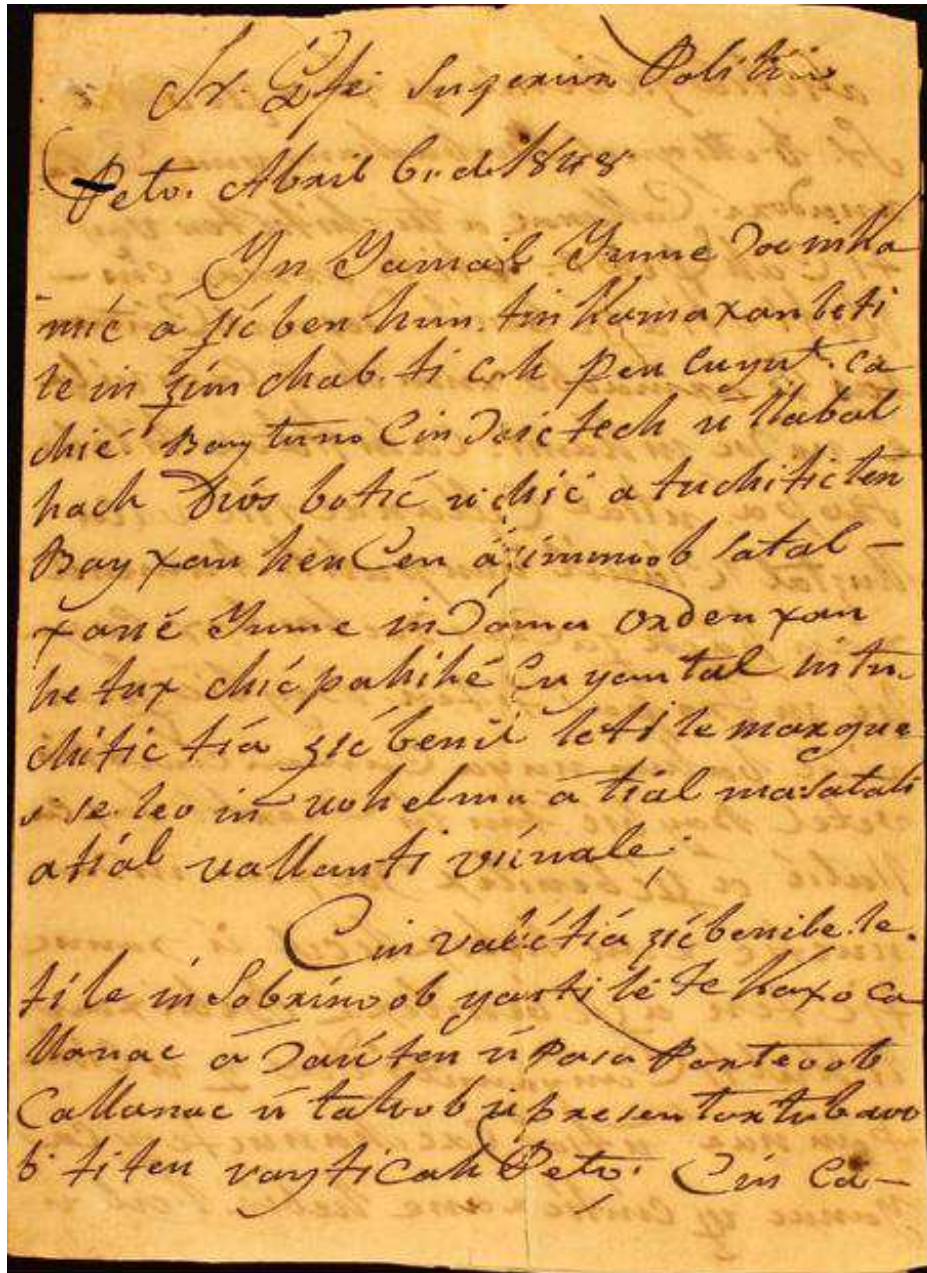 Sr. Gefe Superior Politico
Peto. Abril 6,, de 1848
Yn Yamail Yume Doc in ka
mic á ɔicben hun. tin kama xan leti
le in ɔim chab. ti cah
chié Bay tuno Cin Dzic tech ú llabal
hach Diós botic u chic a tuchitic ten
Bay xan hen Cen a ɔimnoob satal –
xané Yume in Dama orden xan
he tux chic pahihé Cu yan tal in tu
chitic tiá ɔicbenil leti le max que
se leo in uohelma a tial ma satali
atiál uallanti viinale;
Cin valic tiá ɔicbenile. le
ti le in Sobrinoob yanti lé te Kaxo ca
llanac á Daú ten ú Pasa Porteoob
Ca llanac ú taloob ú presentartubaoo
b. ti ten vay ti Cah Peto. Cin Ca–